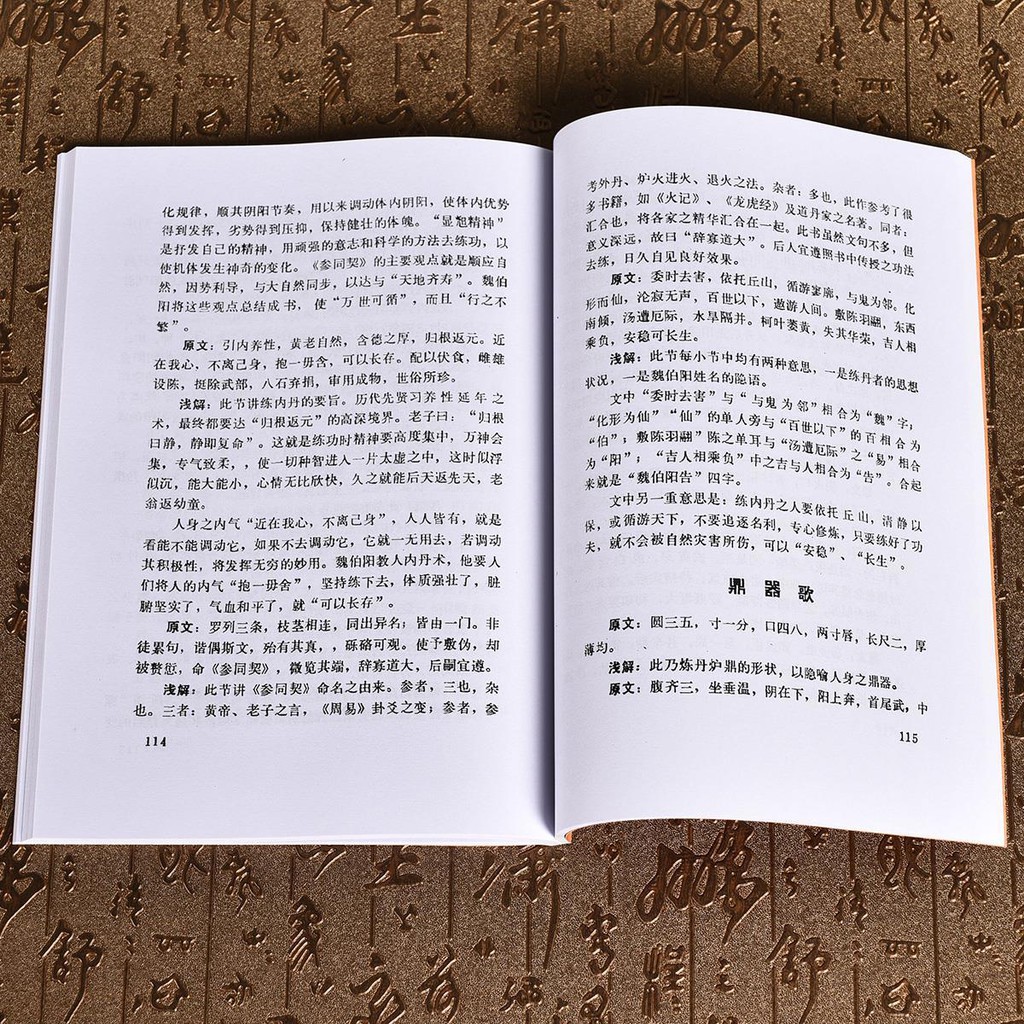 化规律，顺其阴阳节奏，用以来调动体内阴阳，使体内优势
得到发挥，劣势得到压抑，保持健壮的体魄。“显愡精神”
是抒发自己的精神，用顽强的意志和科学的方法去练功，以
使机体发生神奇的变化。《参同契》的主要观点就是顺应自
然，因势利导，与大自然同步，以达与“天地齐寿”。魏伯
阳将这些观点总结成书，使“万世可循”，而且“行之不
繁”。
原文：引内养性，黄老自然，含德之厚，归根返元。近
在我心，不离己身，抱一毋舍，可以长存。配以伏食，雌雄
设陈，挺除武部，八石弃捐，审用成物，世俗所珍。
浅解：此节讲练内丹的要旨。历代先贤习养性延年之
术，最终都要达“归根返元”的高深境界。老子曰：“归根
曰静，静即复命”。这就是练功时精神要高度集中，万神会
集，专气致柔，，使一切种智进入一片太虚之中，这时似浮
似沉，能大能小，心情无比欣快，久之就能后天返先天，老
翁返幼童。
人身之内气“近在我心，不离己身”，人人皆有，就是
看能不能调动它，如果不去调动它，它就一无用去，若调动
其积极性，将发挥无穷的妙用。魏伯阳教人内丹术，他要人
们将人的内气“抱一毋舍”，坚持练下去，体质强壮了，脏
腑坚实了，气血和平了，就“可以长存”。
原文：罗列三条，枝茎相连，同出异名；皆由一门。非
徒累句，谐偶斯文，殆有其真，，砾硌可观。使予敷伪，却
被赘愆，命《参同契》，微览其端，辞寡道大，后嗣宜遵。
浅解：此节讲《参同契》命名之由来。参者，三也，杂
也。三者：黄帝、老子之言，《周易》卦爻之变；参者，参
114
考外丹、炉火进火、退火之法。杂者：多也，此作参考了很
多书籍，如《火记》、《龙虎经》及道丹家之名著。同者：
汇合也，将各家之精华汇合在一起。此书虽然文句不多，但
意义深远，故曰“辞寡道大”。后人宜遵照书中传授之功法
去练，日久自见良好效果。
原文：委时去害，依托丘山，循游寥廓，与鬼为邻。化
形而仙，沦寂无声，百世以下，遨游人间。敷陈羽翮，东西
南倾，汤遭厄际，水旱隔并。柯叶萎黄，失其华荣，吉人相
乘负，安稳可长生。
浅解：此节每小节中均有两种意思，一是练丹者的思想
状况，一是魏伯阳姓名的隐语。
文中“委时去害”与“与鬼为邻”相合为“魏”字；
“化形为仙”“仙”的单人旁与“百世以下”的百相合为
“伯”；敷陈羽翮”陈之单耳与“汤遭厄际”之“易”相合
为“阳”；“吉人相乘负”中之吉与人相合为“告”。合起
来就是“魏伯阳告”四字。
文中另一重意思是：练内丹之人要依托丘山，清静以
保，或循游天下，不要追逐名利，专心修炼，只要练好了功
夫，就不会被自然灾害所伤，可以“安稳”、“长生”。
鼎器歌
原文：圆三五，寸一分，口四八，两寸唇，长尺二，厚
薄均。
浅解：此乃炼丹炉鼎的形状，以隐喻人身之鼎器。
原文：腹齐三，坐垂温，阴在下，阳上奔，首尾武，中
115